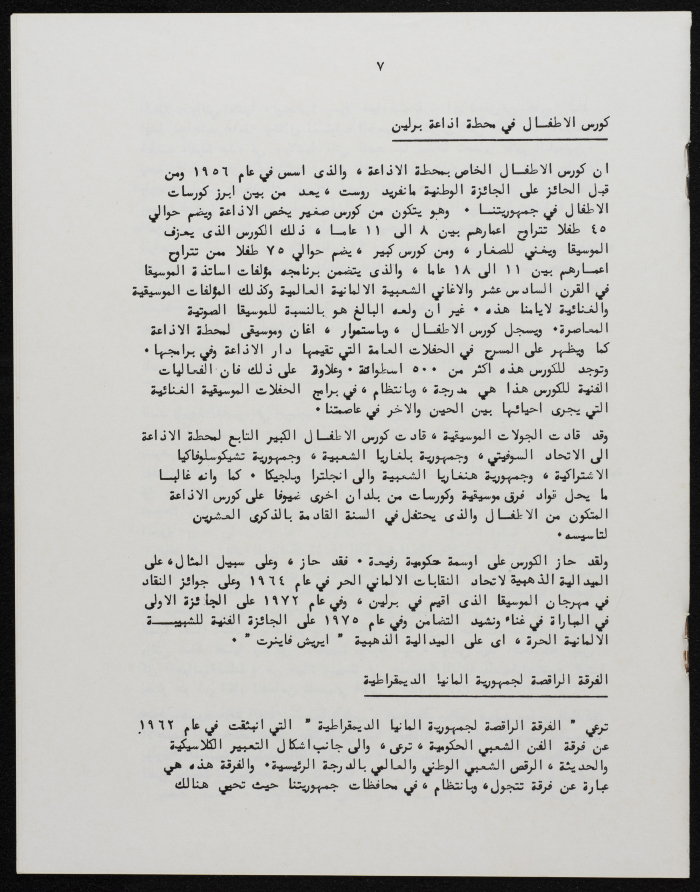 ٧
كورس الاطفـال في محطة اذاعة برلين
ان كورس الاطفـال الخاص بمحطة الاذاعة ، والذى اسس في عام ١٩٥٦ ومن
قبل الحائز على الجائزة الوطنية مانفريد روست ، يعد من بين ابرز كورسات
الاطفال في جمهوريتنـا . وهو يتكون من كورس صغير يخص الاذاعة ويضم حوالي
٤٥ طفلا تتراوح اعمارهم بين ٨ الى ١١ عامـا ، ذلك الكورس الذى يعزف
الموسيقا ويغني للصغار ، ومن كورس كبير ، يضم حوالي ٧٥ طفلا ممن تتراوح
اعمـارهم بين ١١ الى ١٨ عاما ، والذى يتضمن برنامجه مؤلفات اساتذة الموسيقا
في القرن السادس عشر والاغاني الشعبية الالمانية العالمية وكذلك المؤلفات الموسيقية
والغنائية لايامنا هذه . غير أن ولعه البالغ هو بالنسبة للموسيقا الصوتية
المعاصرة. ويسجل كورس الاطفـال ، وباستمرار ، اغان وموسيقى لمحطة الاذاعة
كما ويظهر على المسرح في الحفلات العامة التي تقيمها دار الاذاعة وفي برامجها.
وتوجد للكورس هذه اكثر من ٥٠٠ اسطوانة . وعلاوة على ذلك فان الفعاليات
الفنية للكورس هذا هي مدرجة ، وبانتظام ، في برامج الحفلات الموسيقية الغنائية
التي يجرى احيائها بين الحين والاخر في عاصمتنا.
وقد قادت الجولات الموسيقية ، قادت كورس الاطفـال الكبير التابع لمحطة الاذاعة
الى الاتحاد السوفيتي ، وجمهورية بلغاريا الشعبية ، وجمهورية تشيكوسلوفاكيا
الاشتراكية ، وجمهورية هنغاريا الشعبية والى انجلترا وبلجيكا . كما وانه غالبـا
ما يحل قواد فرق موسيقية وكورسات من بلدان اخرى ضيوفا على كورس الاذاعة
المتكون من الاطفـال والذى يحتفل في السنة القادمة بالذكرى العشرين
لتاسيسه.
ولقد حاز الكورس على اوسمة حكومية رفيعة . فقد حاز ، وعلى سبيل المثال، على
الميدالية الذهبية لاتحاد النقابات الالماني الحر في عام ١٩٦٤ وعلى جوائز النقاد
في مهرجان الموسيقا الذى اقيم في برلين ، وفي عام ١٩٧٢ على الجائزة الاولى
في المباراة في غناء ونشيد التضامن وفي عام ١٩٧٥ على الجائزة الفنية للشبيبـــة
الالمانية الحرة ، اى على الميدالية الذهبية " ايريش فاينرت " .
الفرقة الراقصة لجمهورية المانيا الديمقراطية
ترعي " الفرقة الراقصة لجمهورية المانيا الديمقراطية " التي انبثقت في عام ١٩٦٢
عن فرقة الفن الشعبي الحكومية ، ترعى ، والى جانب اشكال التعبير الكلاسيكية
والحديثة ، الرقص الشعبي الوطني والعالمي بالدرجة الرئيسية. والفرقة هذه هي
عبارة عن فرقة تتجول، وبانتظام ، في محافظات جمهوريتنا حيث تحيي هنالك